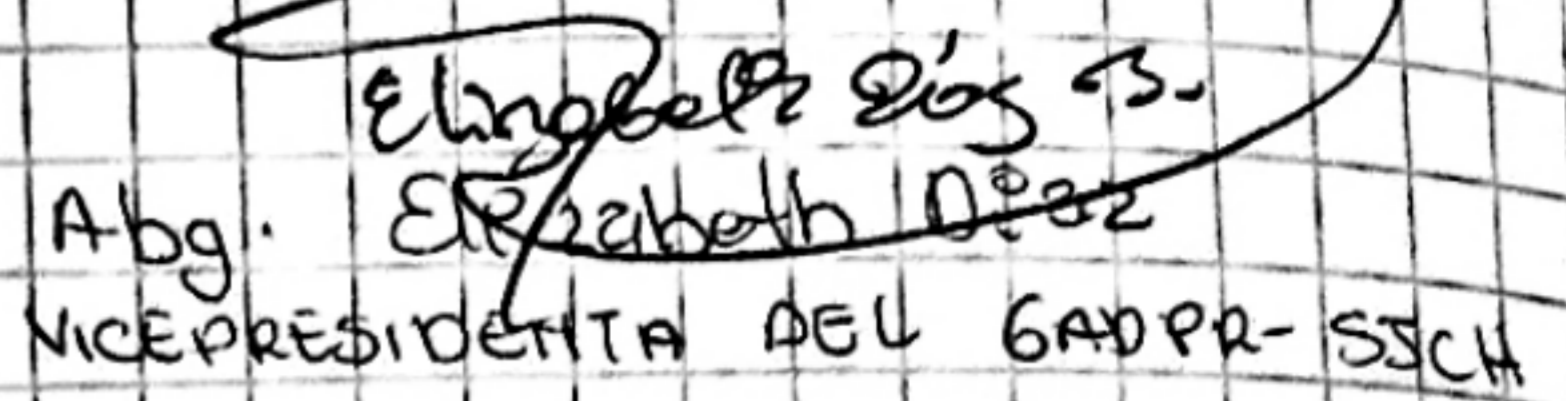 Elizabeth Díaz B.
Abg. Elizabeth Díaz
VICEPRESIDENTA DEL GADPR-SJCH